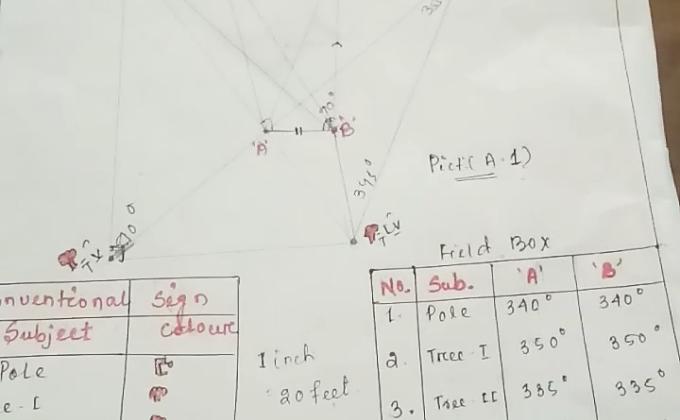 30
70°
'A'
'B'
345°
Pict:( A. 1)
T IV
T V
Field Box
No. Sub. 'A' 'B'
1. Pole 340° 340°
2. Treee I 350° 350°
3. Tree II 335° 335°
nventional Sign
Subject Coloure
Pole
e - I
1 inch
20 feet